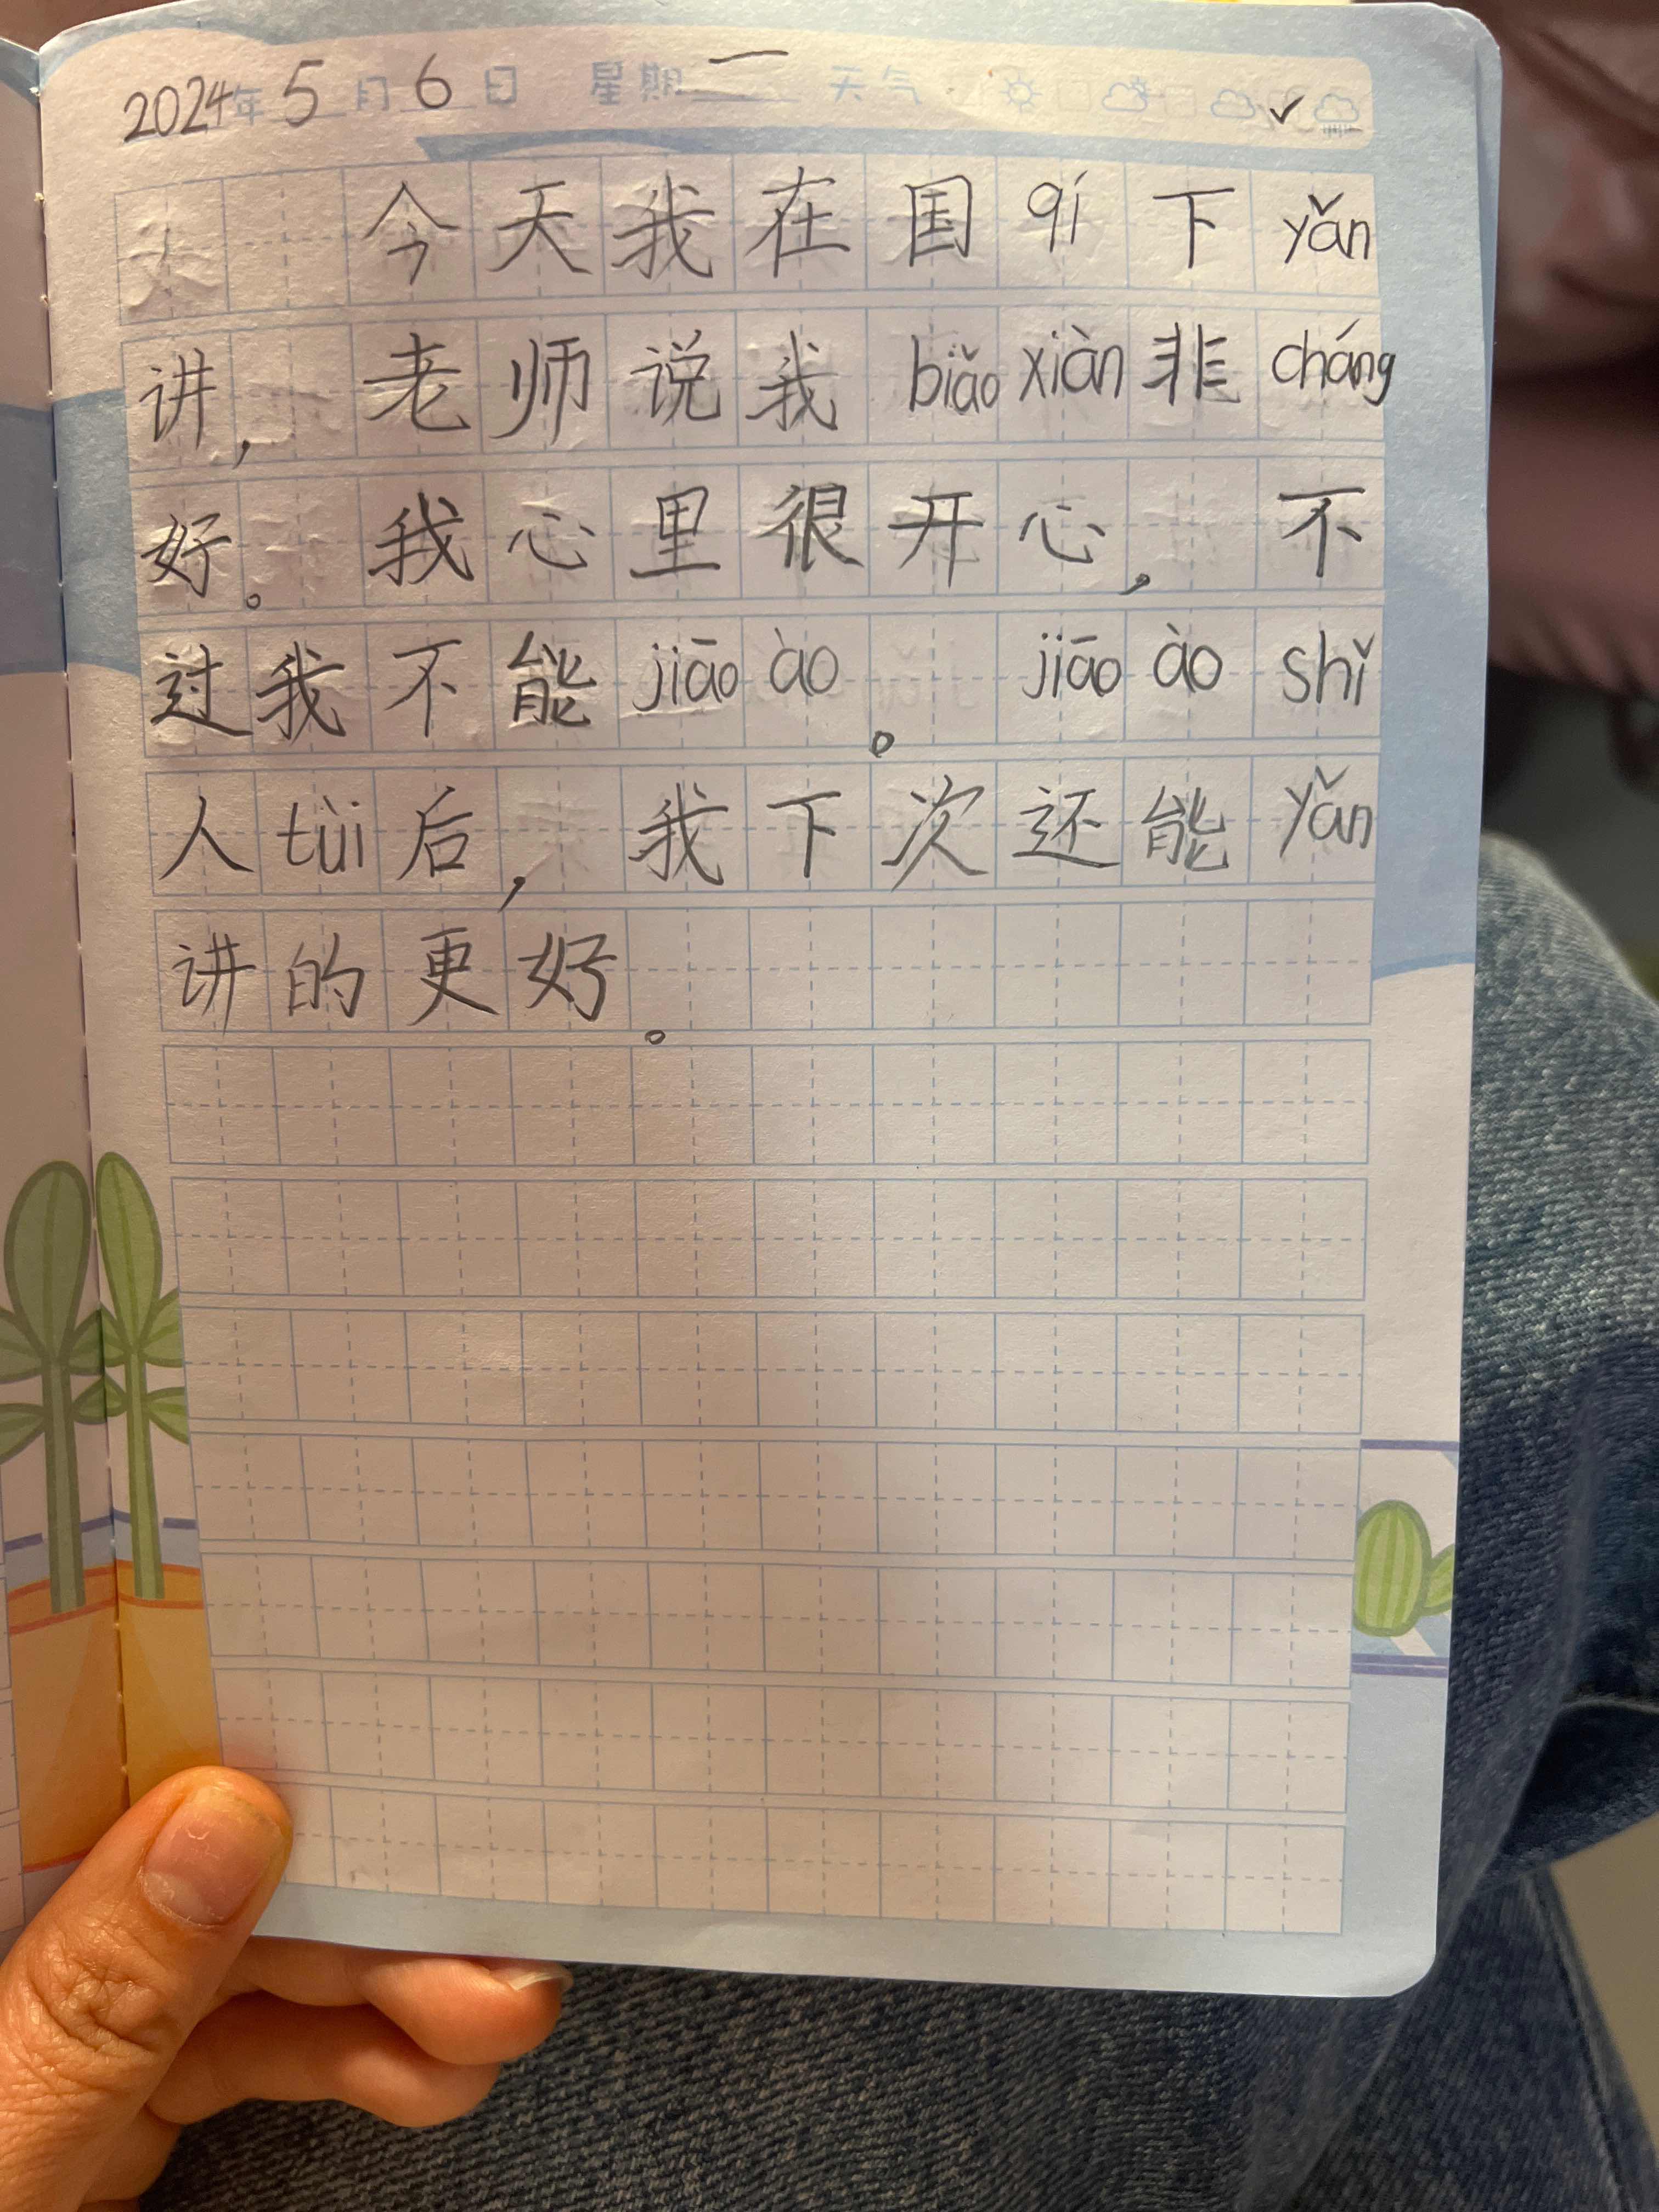 2024年5月6日 星期一 天气
今天我在国qí下yǎn
讲，老师说我biǎo xiàn非cháng
好。我心里很开心，不
过我不能jiāo ào。jiāo ào shǐ
人tùi后，我下次还能yǎn
讲的更好。